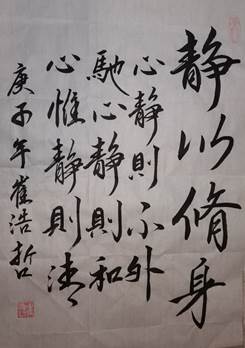 静以脩身
心静則不外
馳心静則和
心惟静則清
庚子年崔浩哲